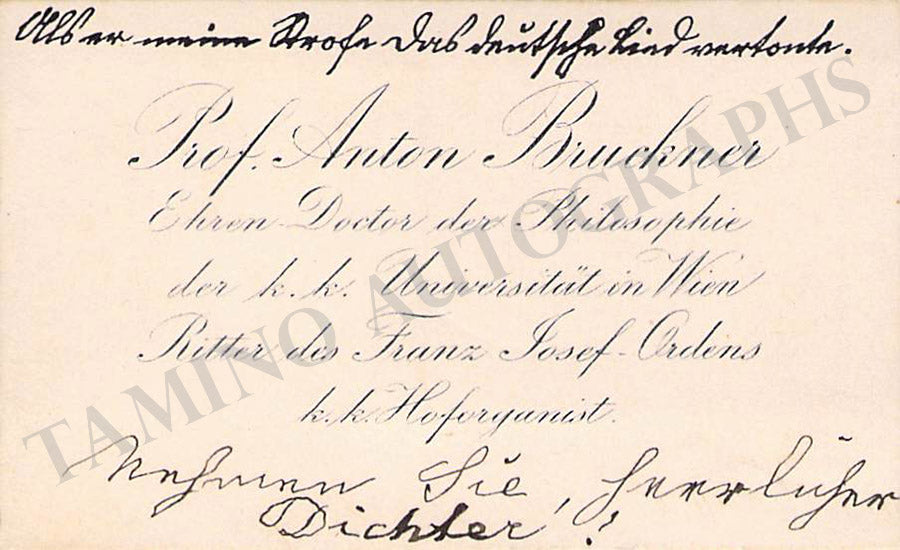 Als er meine Strofe das deutsche Lied vertonte.
Prof. Anton Bruckner
Ehren-Doctor der Philosophie
der k. k. Universität in Wien
Ritter des Franz Josef-Ordens
k. k. Hoforganist.
Nehmen Sie, herrlicher
Dichter!
TAMINO AUTOGRAPHS